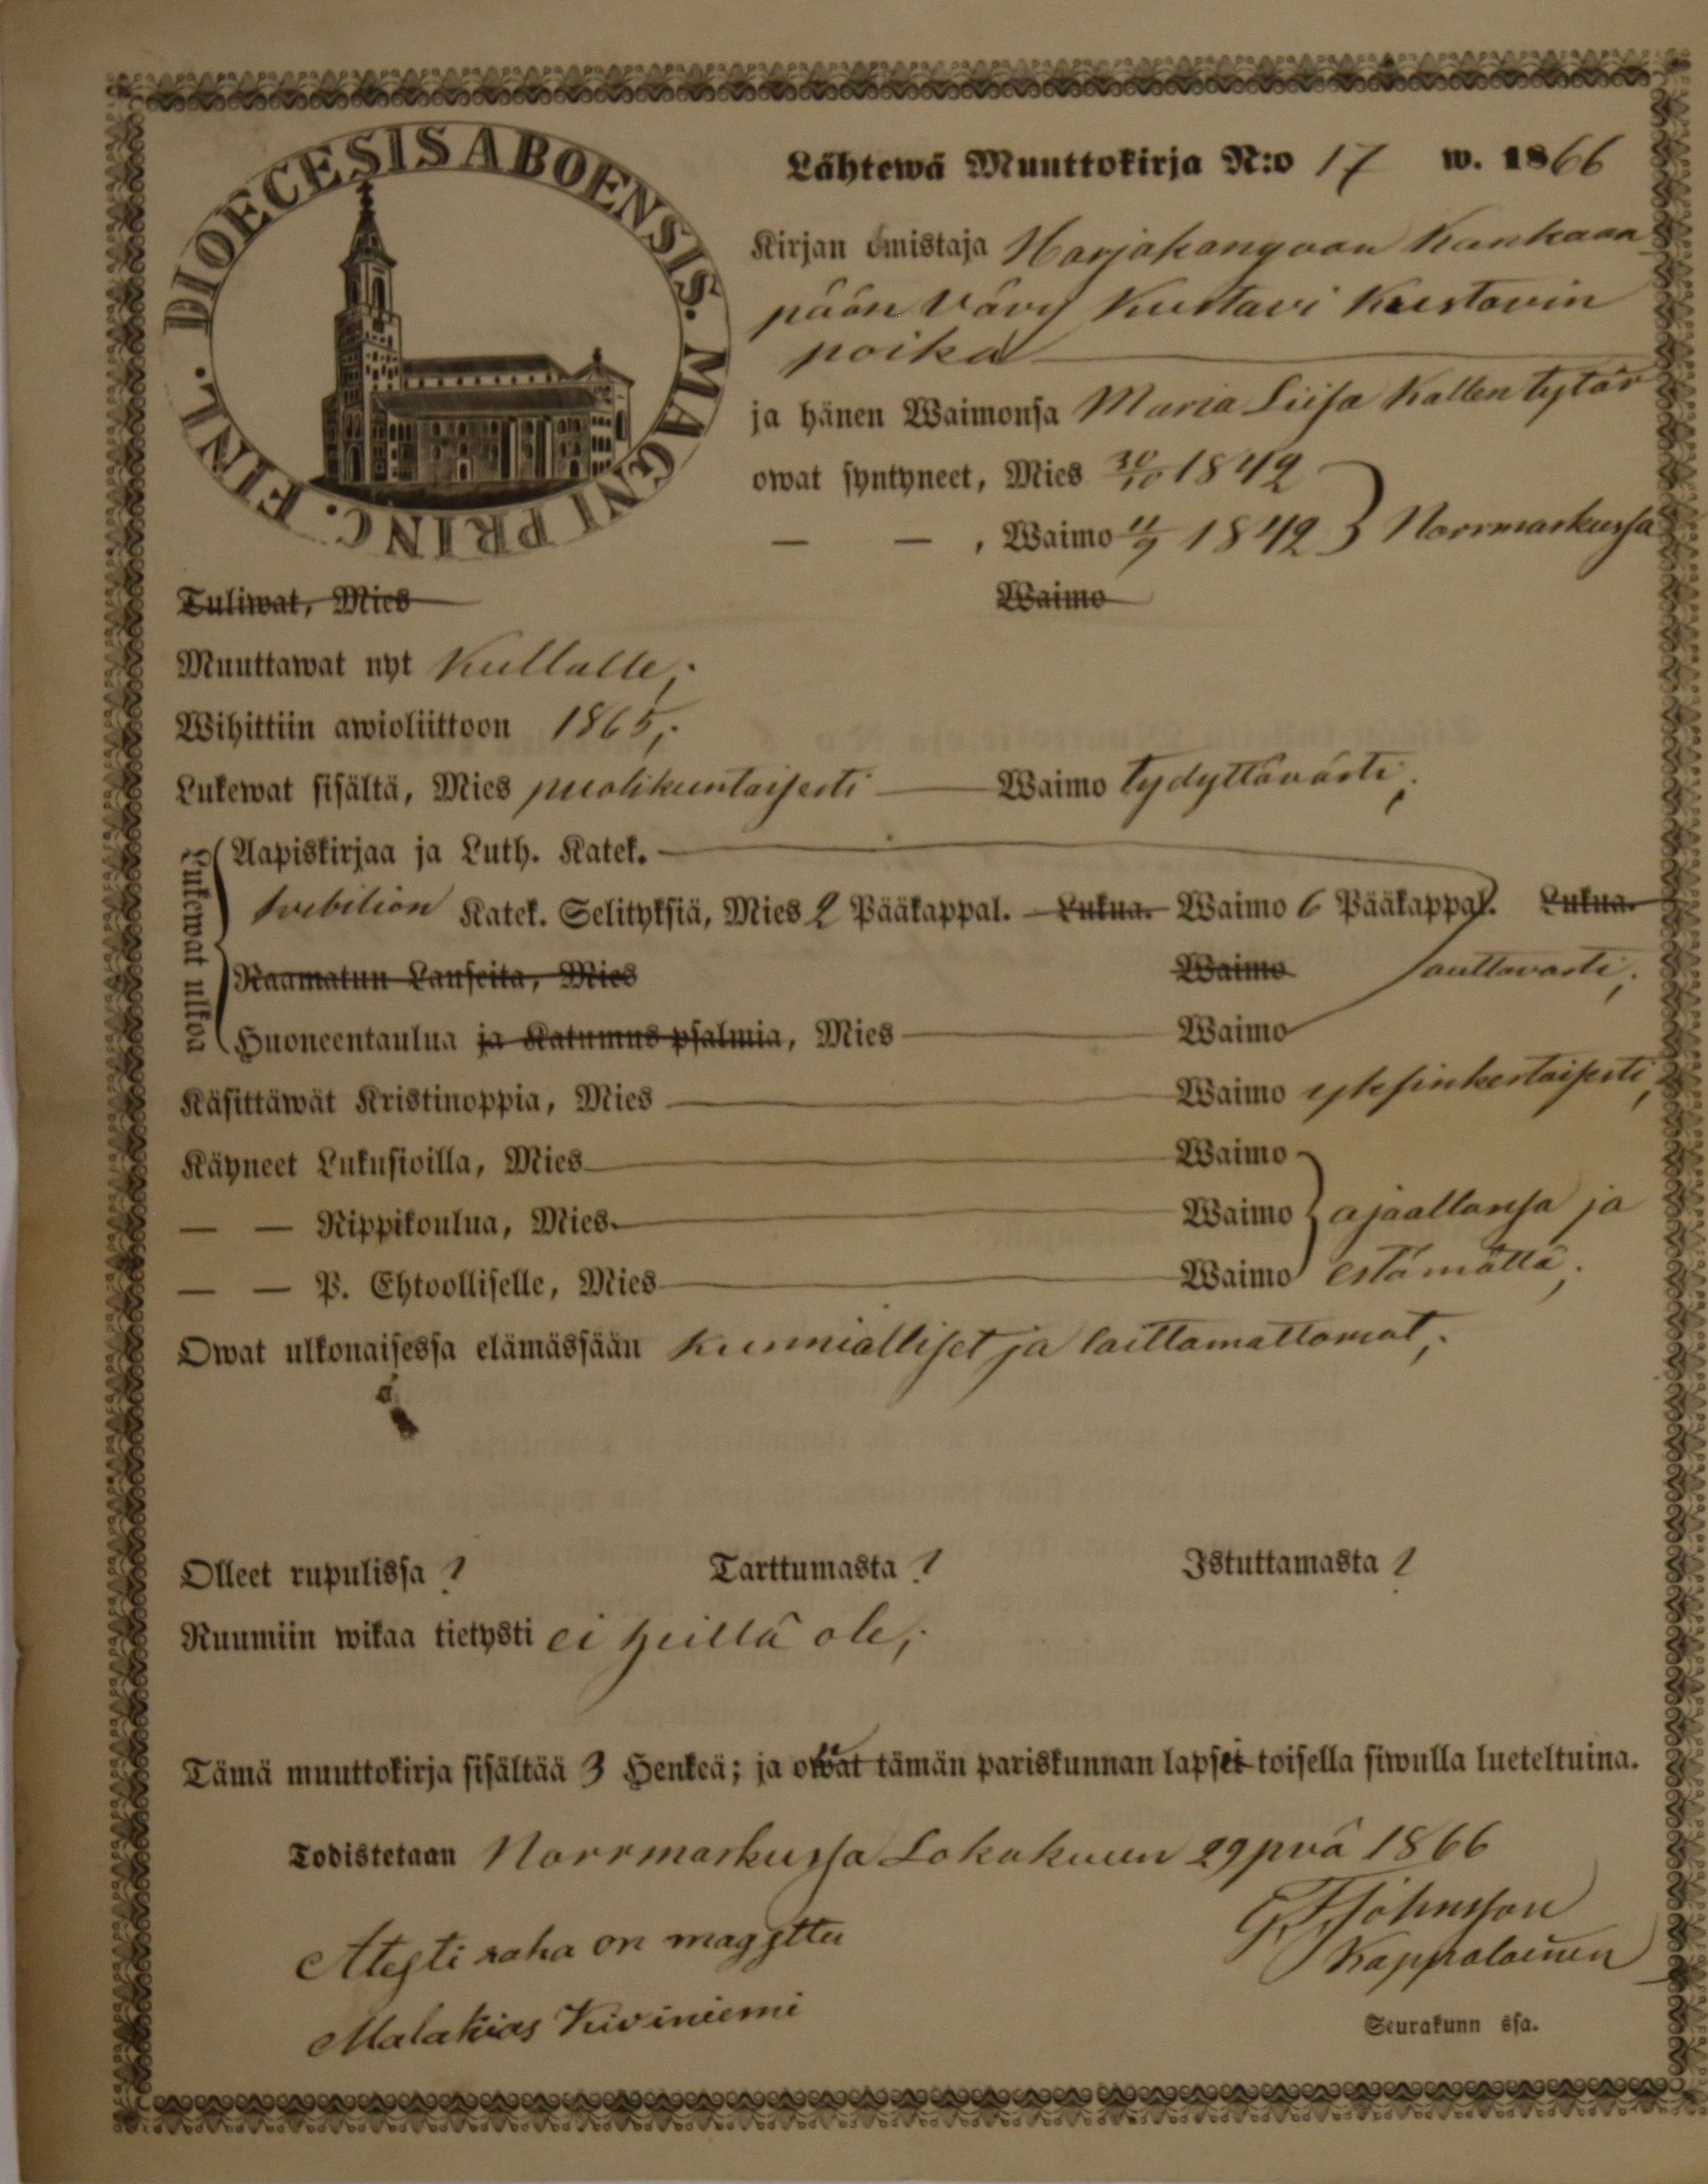 DIOECESIS ABOENSIS. MAGNI PRINC. FINL.
Lähtewä Muuttokirja N:o 17 w. 1866
Kirjan omistaja Harjakangaan Kankaan
pään Vävy Kustavi Kustavin
poika
ja hänen Waimonsa Maria Liisa Kallen tytär
owat syntyneet, Mies 30/10 1842
— — , Waimo 11/9 1842 } Norrmarkussa
Tuliwat, Mies Waimo
Muuttawat nyt Kullalle;
Wihittiin awioliittoon 1865;
Lukewat sisältä, Mies puolikuntaisesti Waimo tydyttävästi;
Lukewat ulkoa
Aapiskirjaa ja Luth. Katek.
Svebilion Katek. Selityksiä, Mies 2 Pääkappal. Lukua. Waimo 6 Pääkappal. Lukua.
Raamatun Lauseita, Mies Waimo auttavasti;
Huoneentaulua ja Katumus psalmia, Mies Waimo
Käsittäwät Kristinoppia, Mies Waimo yksinkertaisesti;
Käyneet Lukusioilla, Mies Waimo
— — Rippikoulua, Mies Waimo } ajaallansa ja
— — P. Ehtoolliselle, Mies Waimo estämättä;
Owat ulkonaisessa elämässään kunnialliset ja laittamattomat;
Olleet rupulissa ? Tarttumasta ? Istuttamasta ?
Ruumiin wikaa tietysti ei heillä ole;
Tämä muuttokirja sisältää 3 Henkeä; ja owat tämän pariskunnan lapset toisella siwulla lueteltuina.
Todistetaan Norrmarkussa Lokakuun 29 pvä 1866
G. F. Johnsson
Atesti raha on maxettu
Kappalainen
Malakias Kiviniemi
Seurakunn ssa.